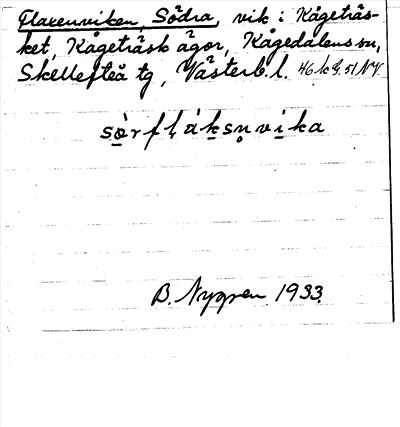 Flaxenviken, Södra, vik i Kågeträs-
ket, Kågeträsk ägor, Kågedalens sn,
Skellefteå tg, Västerb. l. 46 k G. 51 NV.
sörflaksn̥vika
B. Nygren 1933.